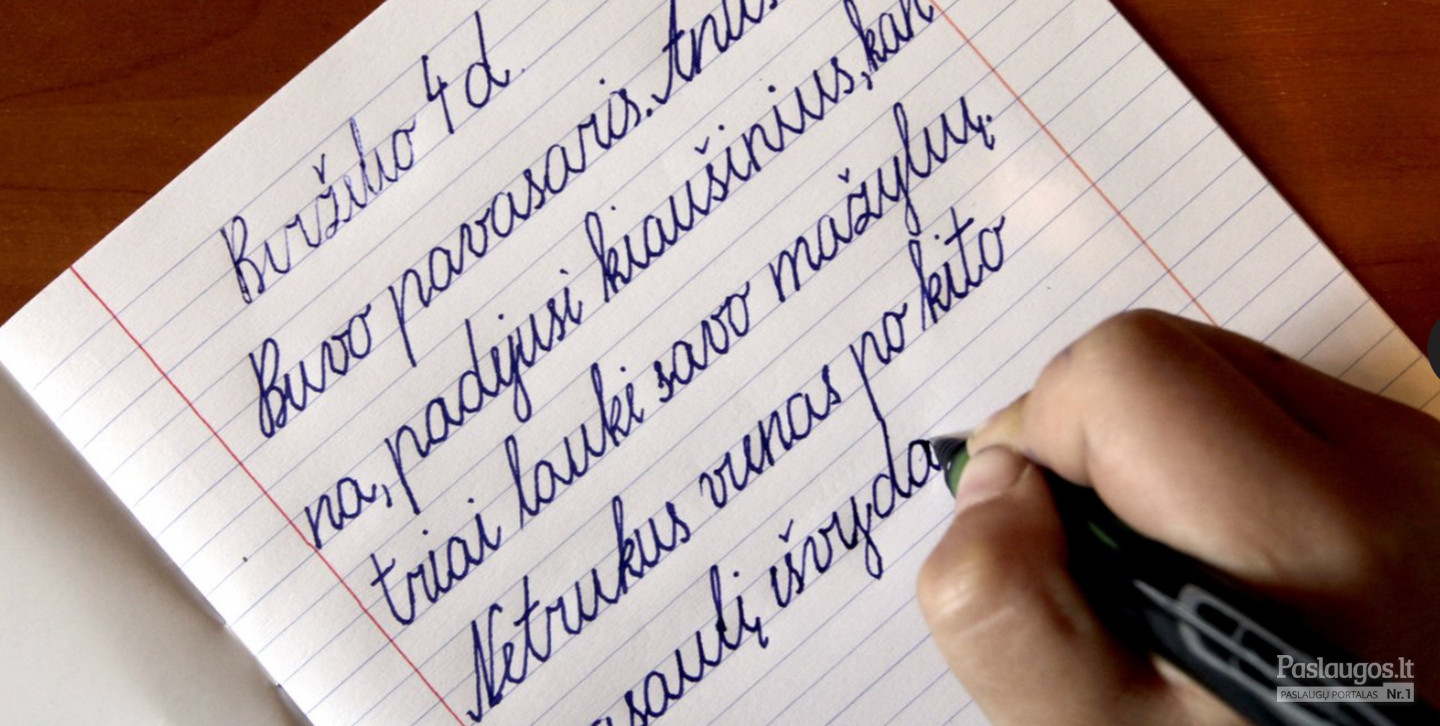 Birželio 4 d.
Buvo pavasaris.
na, padėjusi kiaušinius, kan
triai laukė savo mažylių.
Netrukus vienas po kito
išvyda
Paslaugos.lt
PASLAUGŲ PORTALAS Nr.1